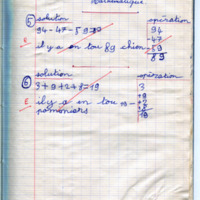 Mathématique
5 solution opération
94-47-59=89 94
-47
E il y a en tou 89 chien -59
89
6 solution opération
3+9+2+8=19 3
+9
E il y a en tou 19 +2
pominiars +8
19